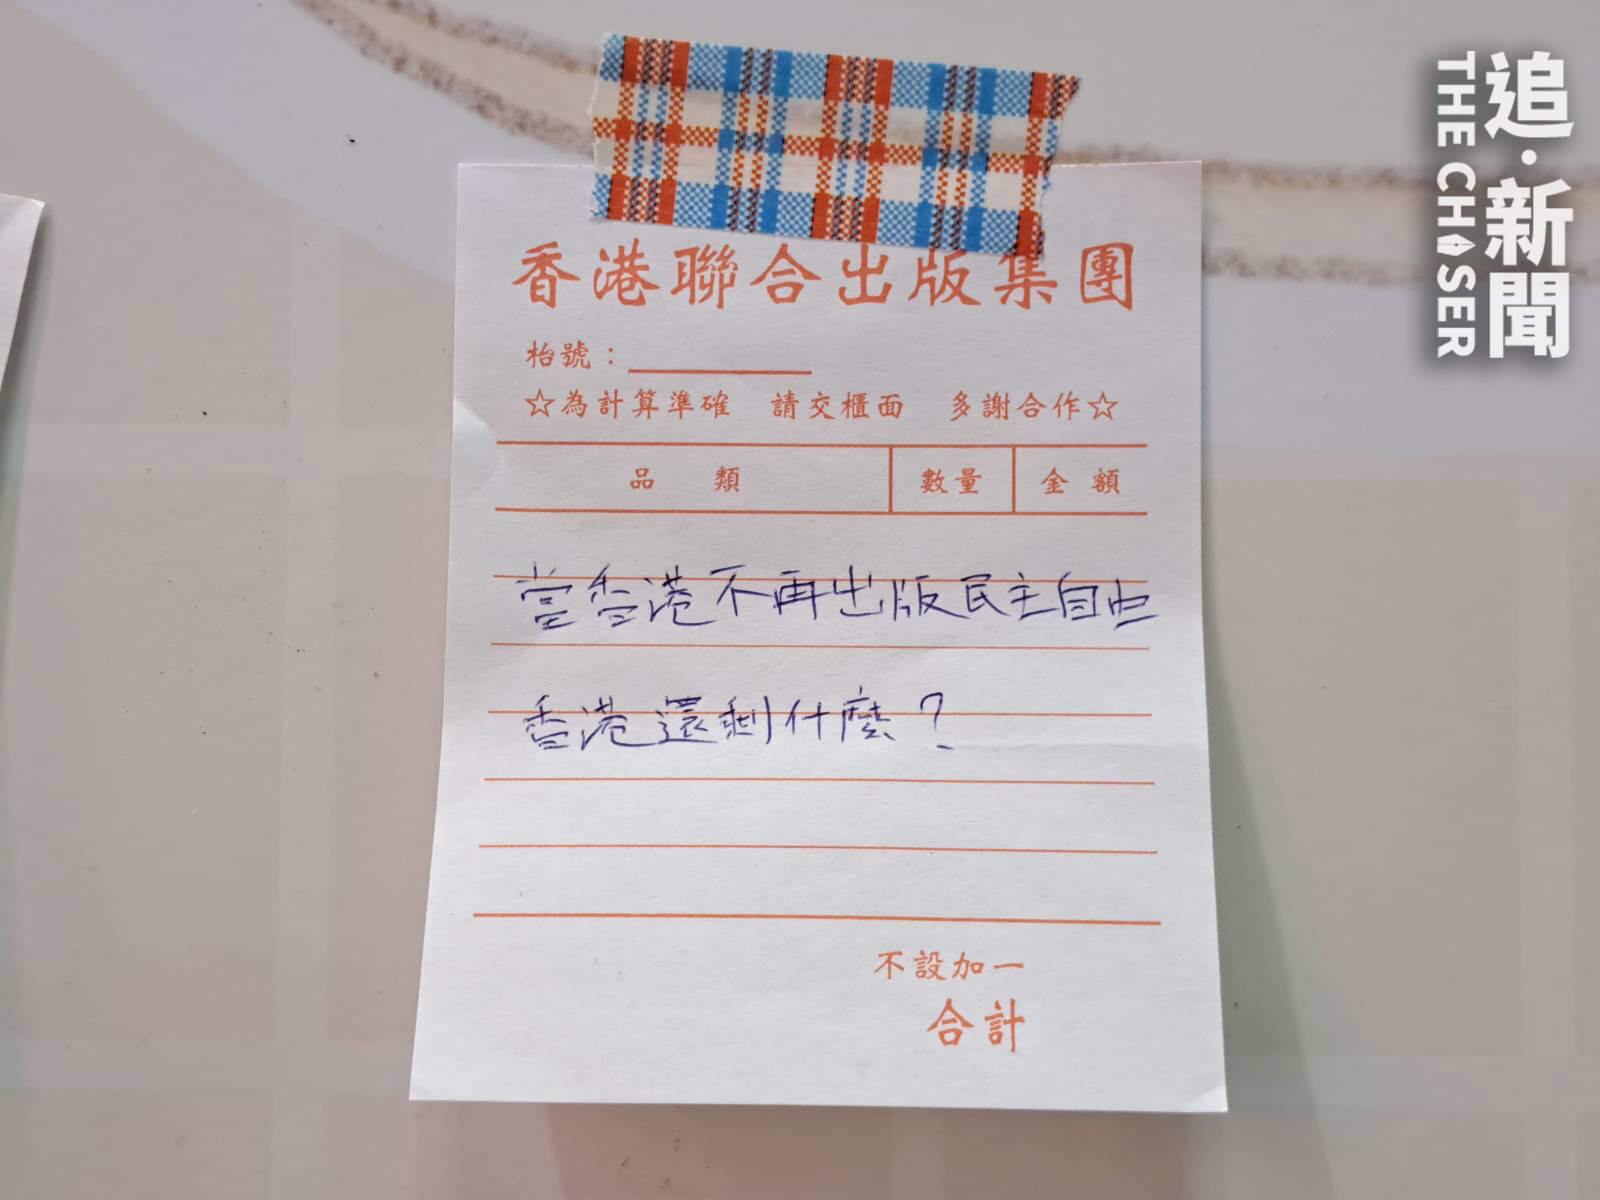 香港聯合出版集團
枱號：
☆為計算準確 請交櫃面 多謝合作☆
品類 數量 金額
當香港不再出版民主自由
香港還剩什麼？
不設加一
合計
追·新聞
THE CHASER